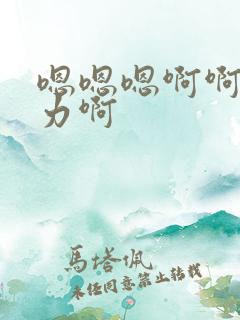 嗯嗯嗯啊啊
力啊
馬塔佩
未经同意禁止转载